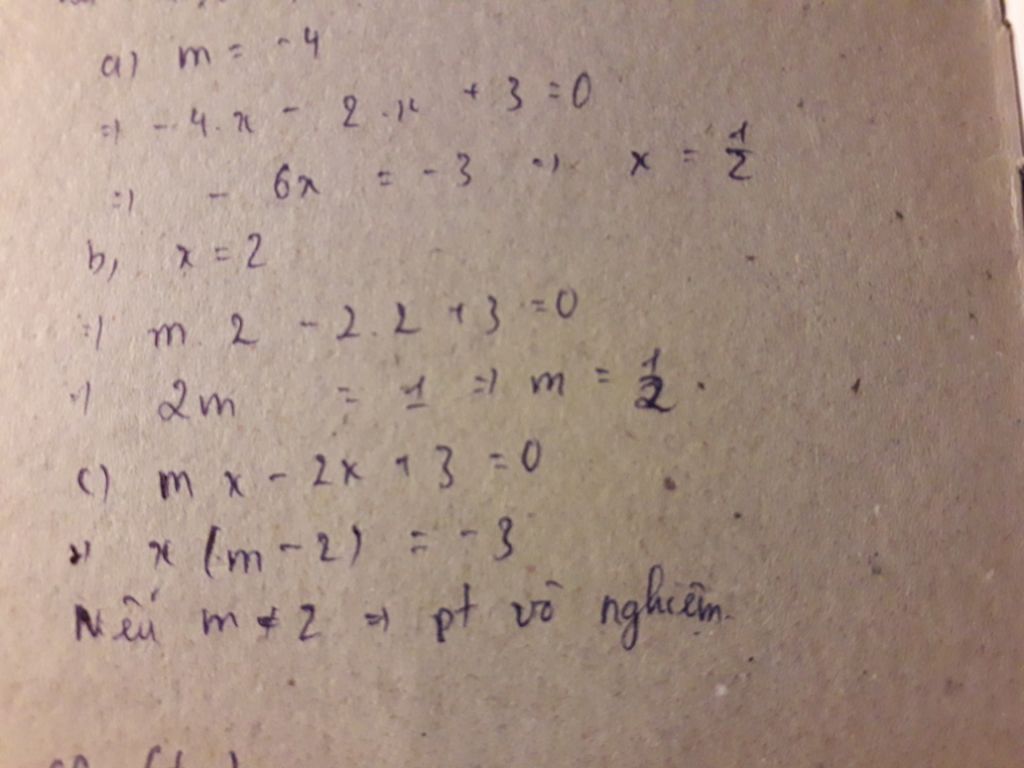 a) m = -4
=) -4.x - 2.x + 3 = 0
=) - 6x = -3 =) x = 1/2
b, x = 2
=) m. 2 - 2.2 + 3 = 0
=) 2m = 1 =) m = 1/2.
c) m x - 2x + 3 = 0
=) x (m - 2) = -3
Nếu m ≠ 2 =) pt vô nghiệm.